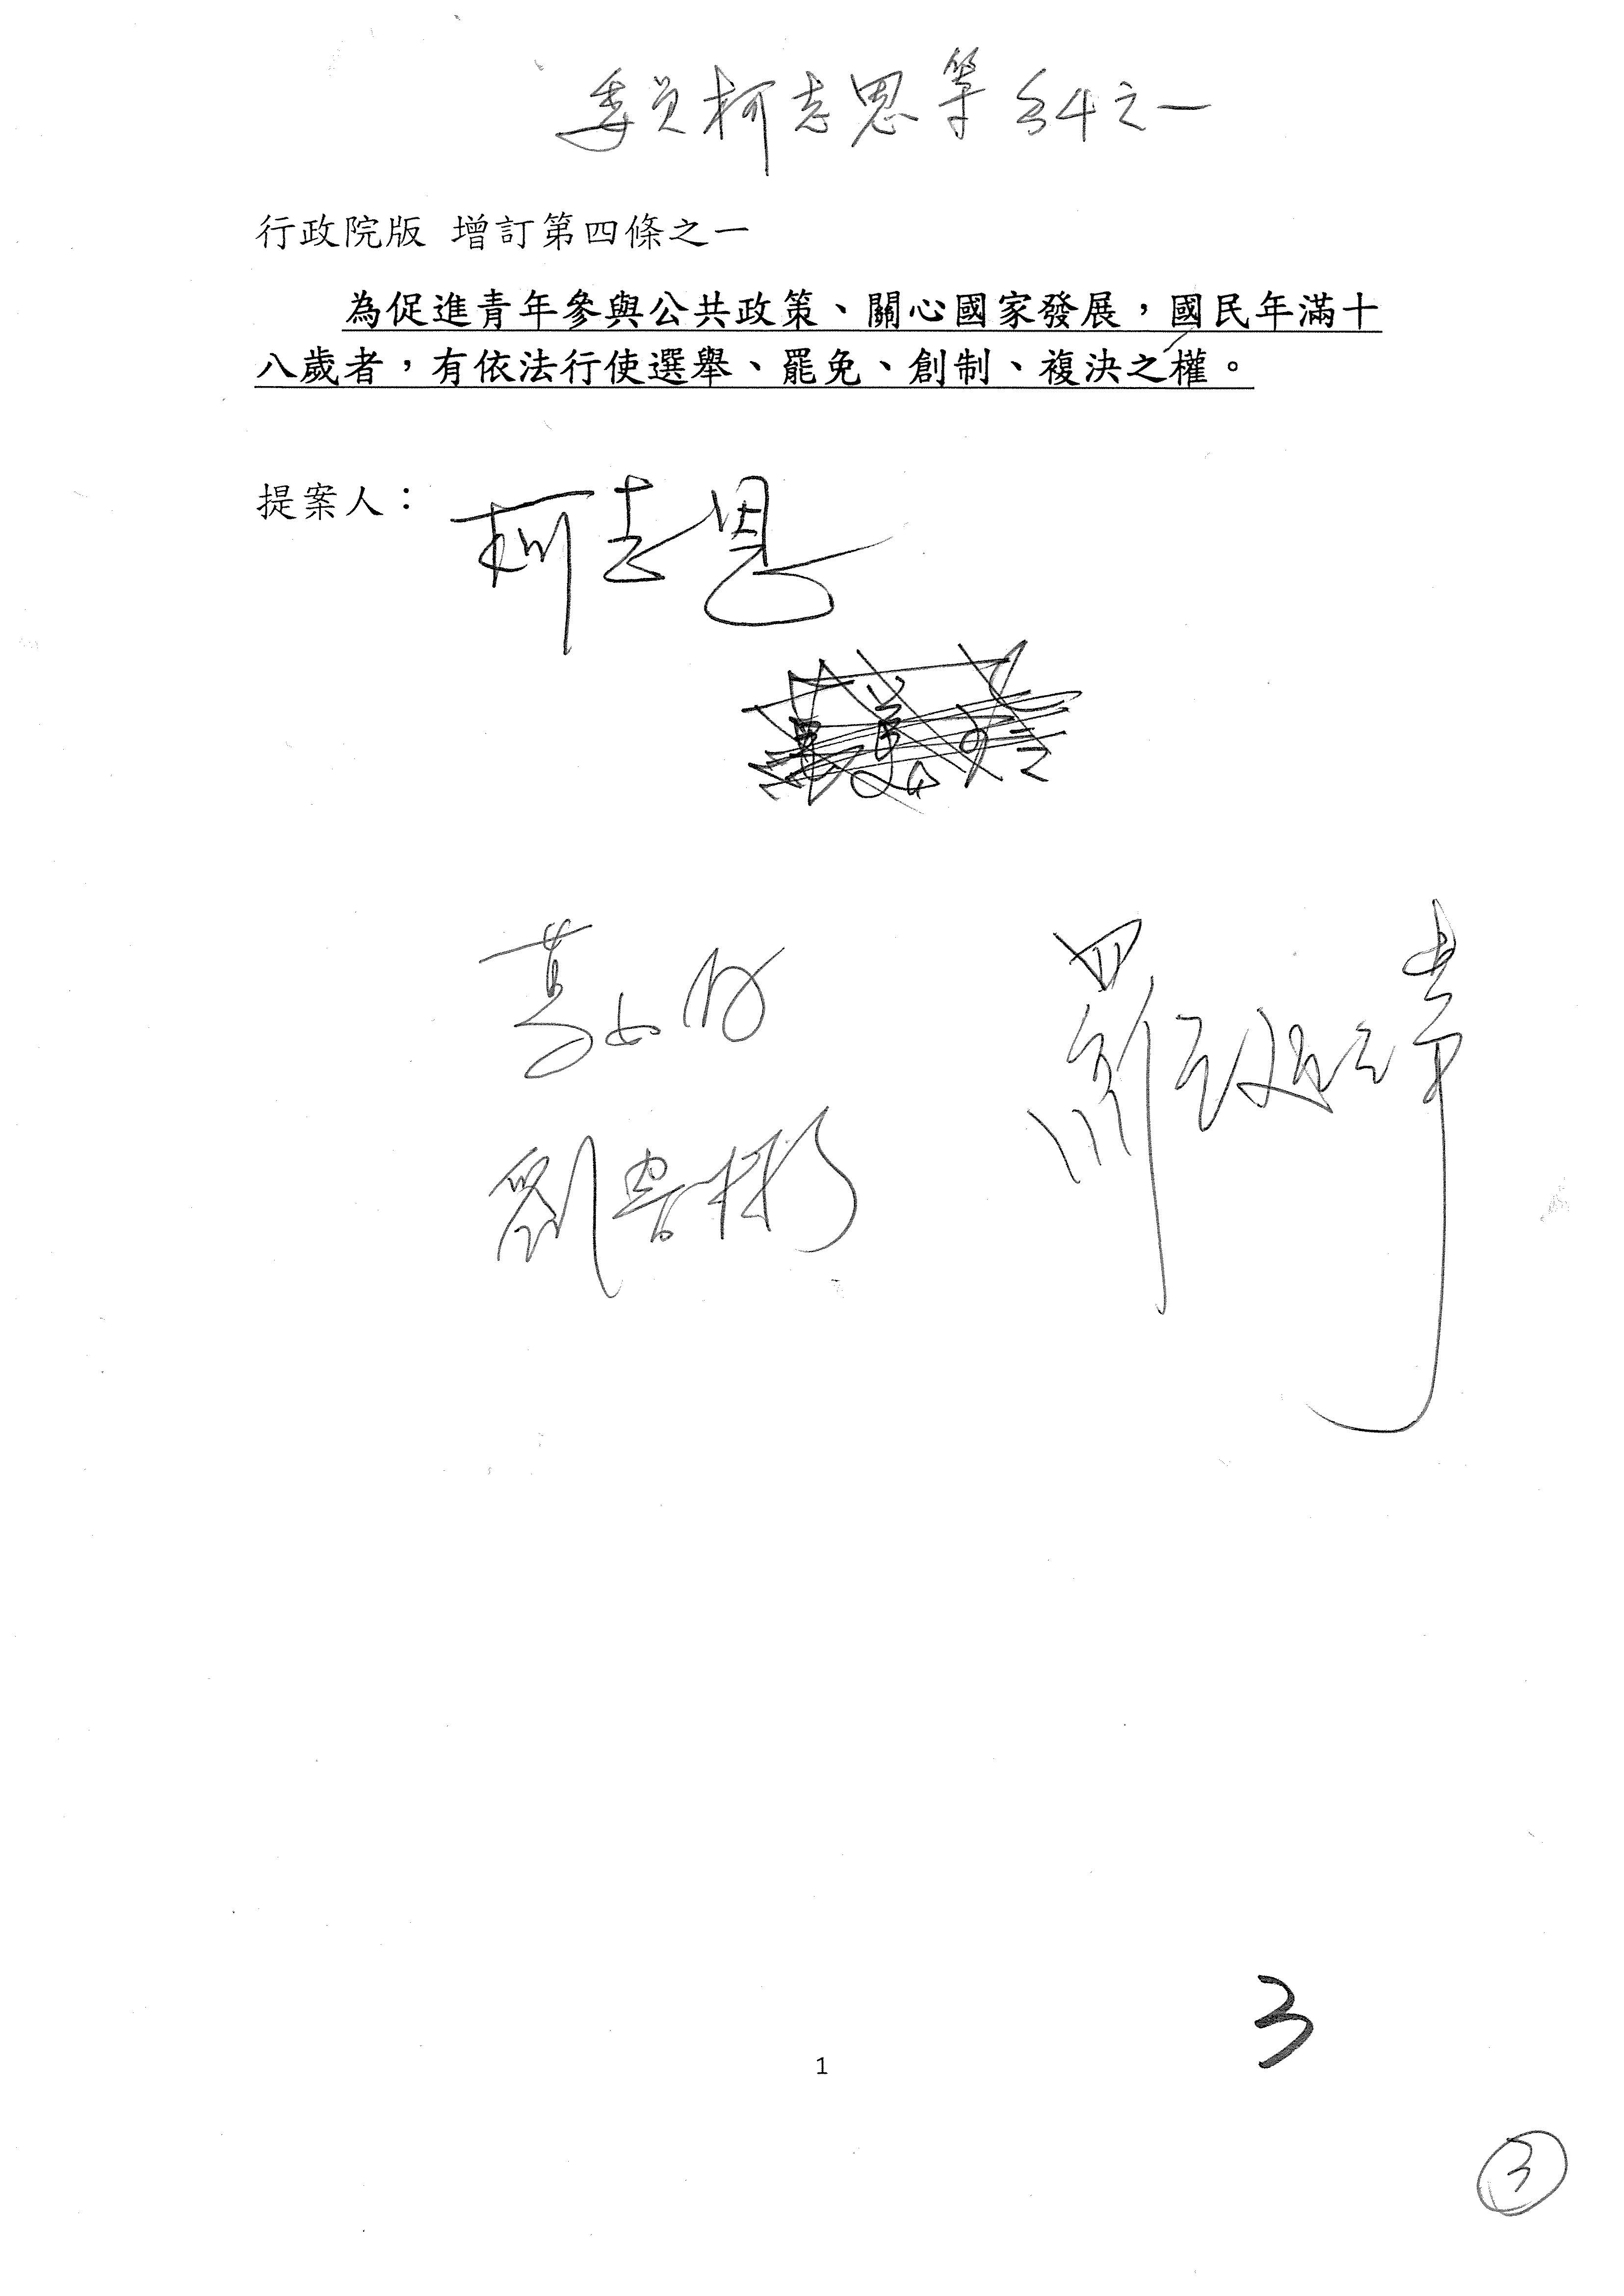 委員柯志恩等 §4之一
行政院版 增訂第四條之一
為促進青年參與公共政策、關心國家發展，國民年滿十
八歲者，有依法行使選舉、罷免、創制、複決之權。
提案人：
柯志恩
葛如鈞
羅廷瑋
劉書彬
3
1
3